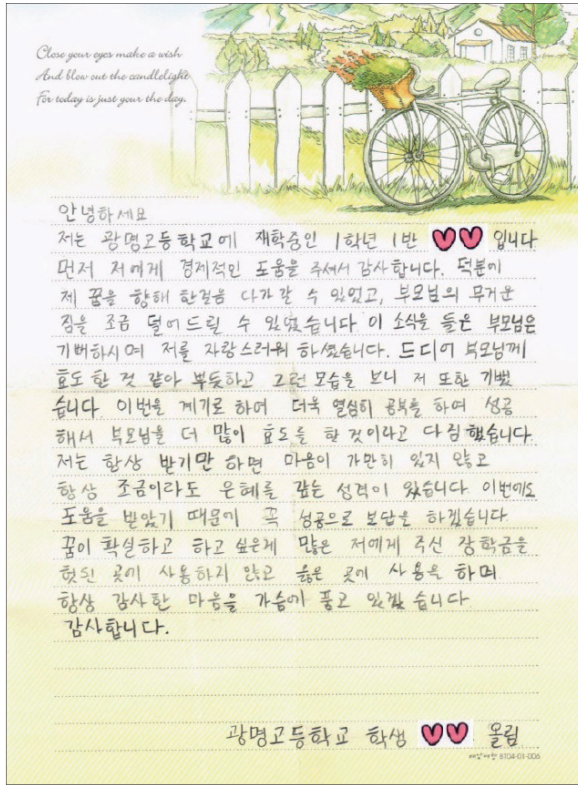 Close your eyes make a wish
And blow out the candlelight
For today is just your the day.
안녕하세요
저는 광명고등학교에 재학중인 1학년 1반 입니다
먼저 저에게 경제적인 도움을 주셔서 감사합니다. 덕분에
제 꿈을 향해 한걸음 다가갈 수 있었고, 부모님의 무거운
짐을 조금 덜어드릴 수 있었습니다 이 소식을 들은 부모님은
기뻐하시며 저를 자랑스러워 하셨습니다. 드디어 부모님께
효도 한 것 같아 뿌듯하고 그런 모습을 보니 저 또한 기뻤
습니다. 이번을 계기로 하여 더욱 열심히 공부를 하여 성공
해서 부모님을 더 많이 효도를 할 것이라고 다짐했습니다.
저는 항상 받기만 하면 마음이 가만히 있지 않고
항상 조금이라도 은혜를 갚는 성격이 있습니다. 이번에도
도움을 받았기 때문에 꼭 성공으로 보답을 하겠습니다.
꿈이 확실하고 하고 싶은게 많은 저에게 주신 장학금을
헛된 곳에 사용하지 않고 옳은 곳에 사용을 하며
항상 감사한 마음을 가슴에 품고 있겠습니다
감사합니다.
광명고등학교 학생 올림
8104-01-006